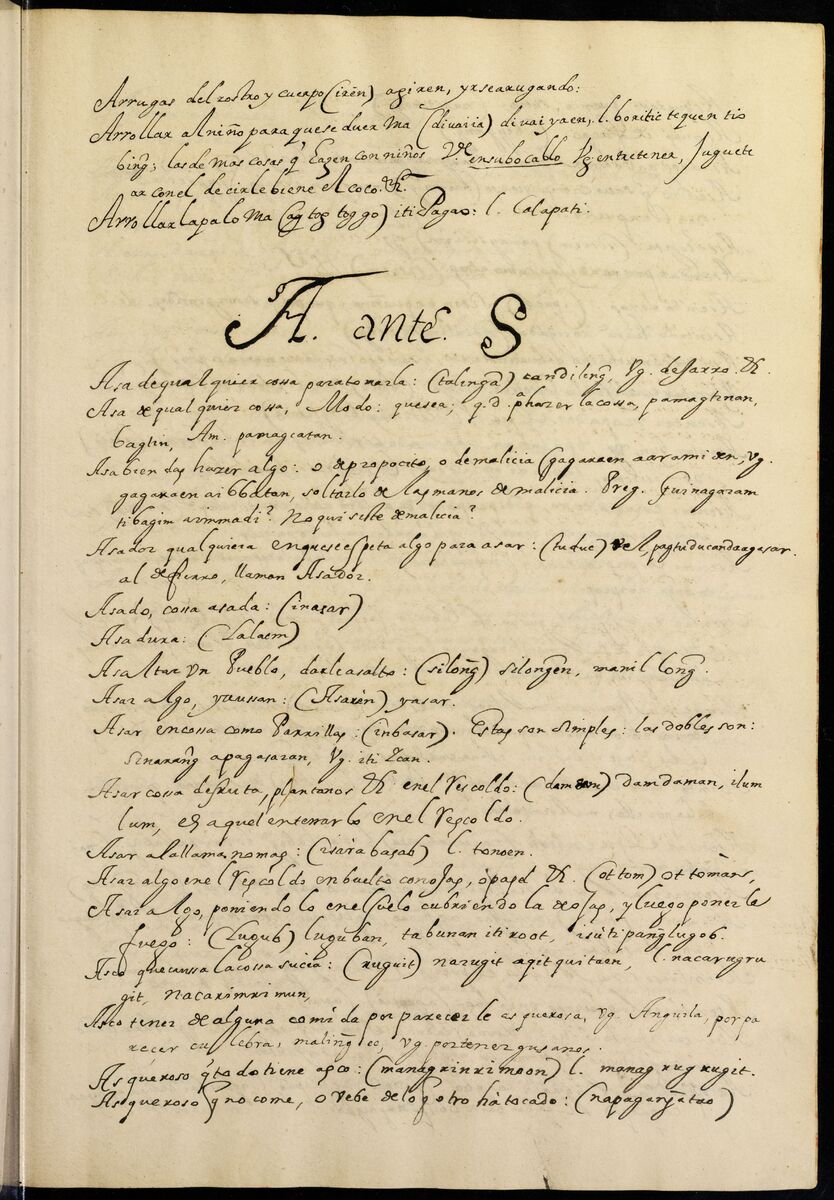 Arrugas del rostro y cuerpo (irēn) agiren, yrsearugando:
Arrollar al niño para que se duerma (divaiia) divaiyaen, l. boritic tequen tio
bing; las demas cosas q̃ hazen con niños Vde ensubocablo Vg. entretener, Juguete
ar con el decirle biene el coco. &ª
Arrollar la paloma (ag tog toggo) iti Pagao: l. Calapati.
A. ante. S
Asa de qual quier cossa para tomarla: (talinga) candileng, Vg. de Jarro. &
Asa de qual quier cossa, Modo: que sea; q.d. pª hazer la cossa, pamagtinan,
bagtin, Am. pamagcatan.
Asabiendas hazer algo: o de proposito, o de malicia (gagaraen aaramiden, vg.
gagaraen ai bbatan, soltarlo de las manos de malicia. Preg. Guinagaram
ti bagim immadi? No quisiste de malicia?
Asador qualquiera en que se espeta algo para asar: (tuduc) vel, pagtuducandaagasar.
al de fierro, llaman Asadór.
Asado, cossa asada: (inasar)
Asadura: (Dalaem)
Asaltar Vn Pueblo, darle asalto: (silong) silongēn, manillong.
Asar algo, yaussan: (Asarēn) yasar.
Asar en cossa como Parrillas: (inbasar). Estas son simples: las dobles son:
Sinarang apagasaran, Vg. iti Ican.
Asar cossa de fruta, plantanos & en el Rescoldo: (damdam) damdaman, ilum
lum, es aquel enterrarlo en el Rescoldo.
Asar a la llama nomas: (isárabasab) l. tonoen.
Asar algo en el Rescoldo enbuelto con ojas, ò papel &. (ottom) ottomàns,
Asar algo, poniendo lo en el suelo cubriendo la de ojas, y luego ponerle
fuego: (lugub) luguban, tabunan iti root, isúti panglúgob.
Asco que caussa la cossa sucia: (rugit) narugit agitquitaen, l. nacarugru
git, nacarimrimun,
Asco tener de alguna comida por parecerle esquerosa, vg. Anguila, por pa
recer culebra, malingec, vg. por tener gusanos.
Asqueroso q̃ todo tiene asco: (managrinrimoon) l. managrugrugit.
Asqueroso q̃ no come, o vebe de lo q̃ otro hà tocado: (napaganjatao)